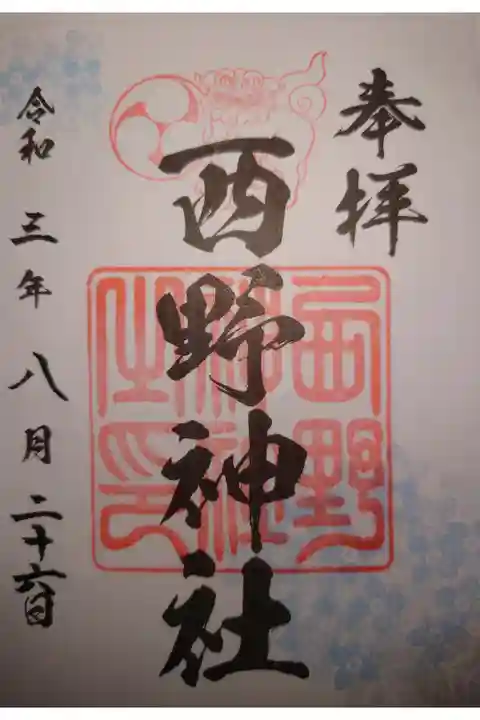 奉拝
西野神社
西野
神社
之印
令和三年八月二十六日